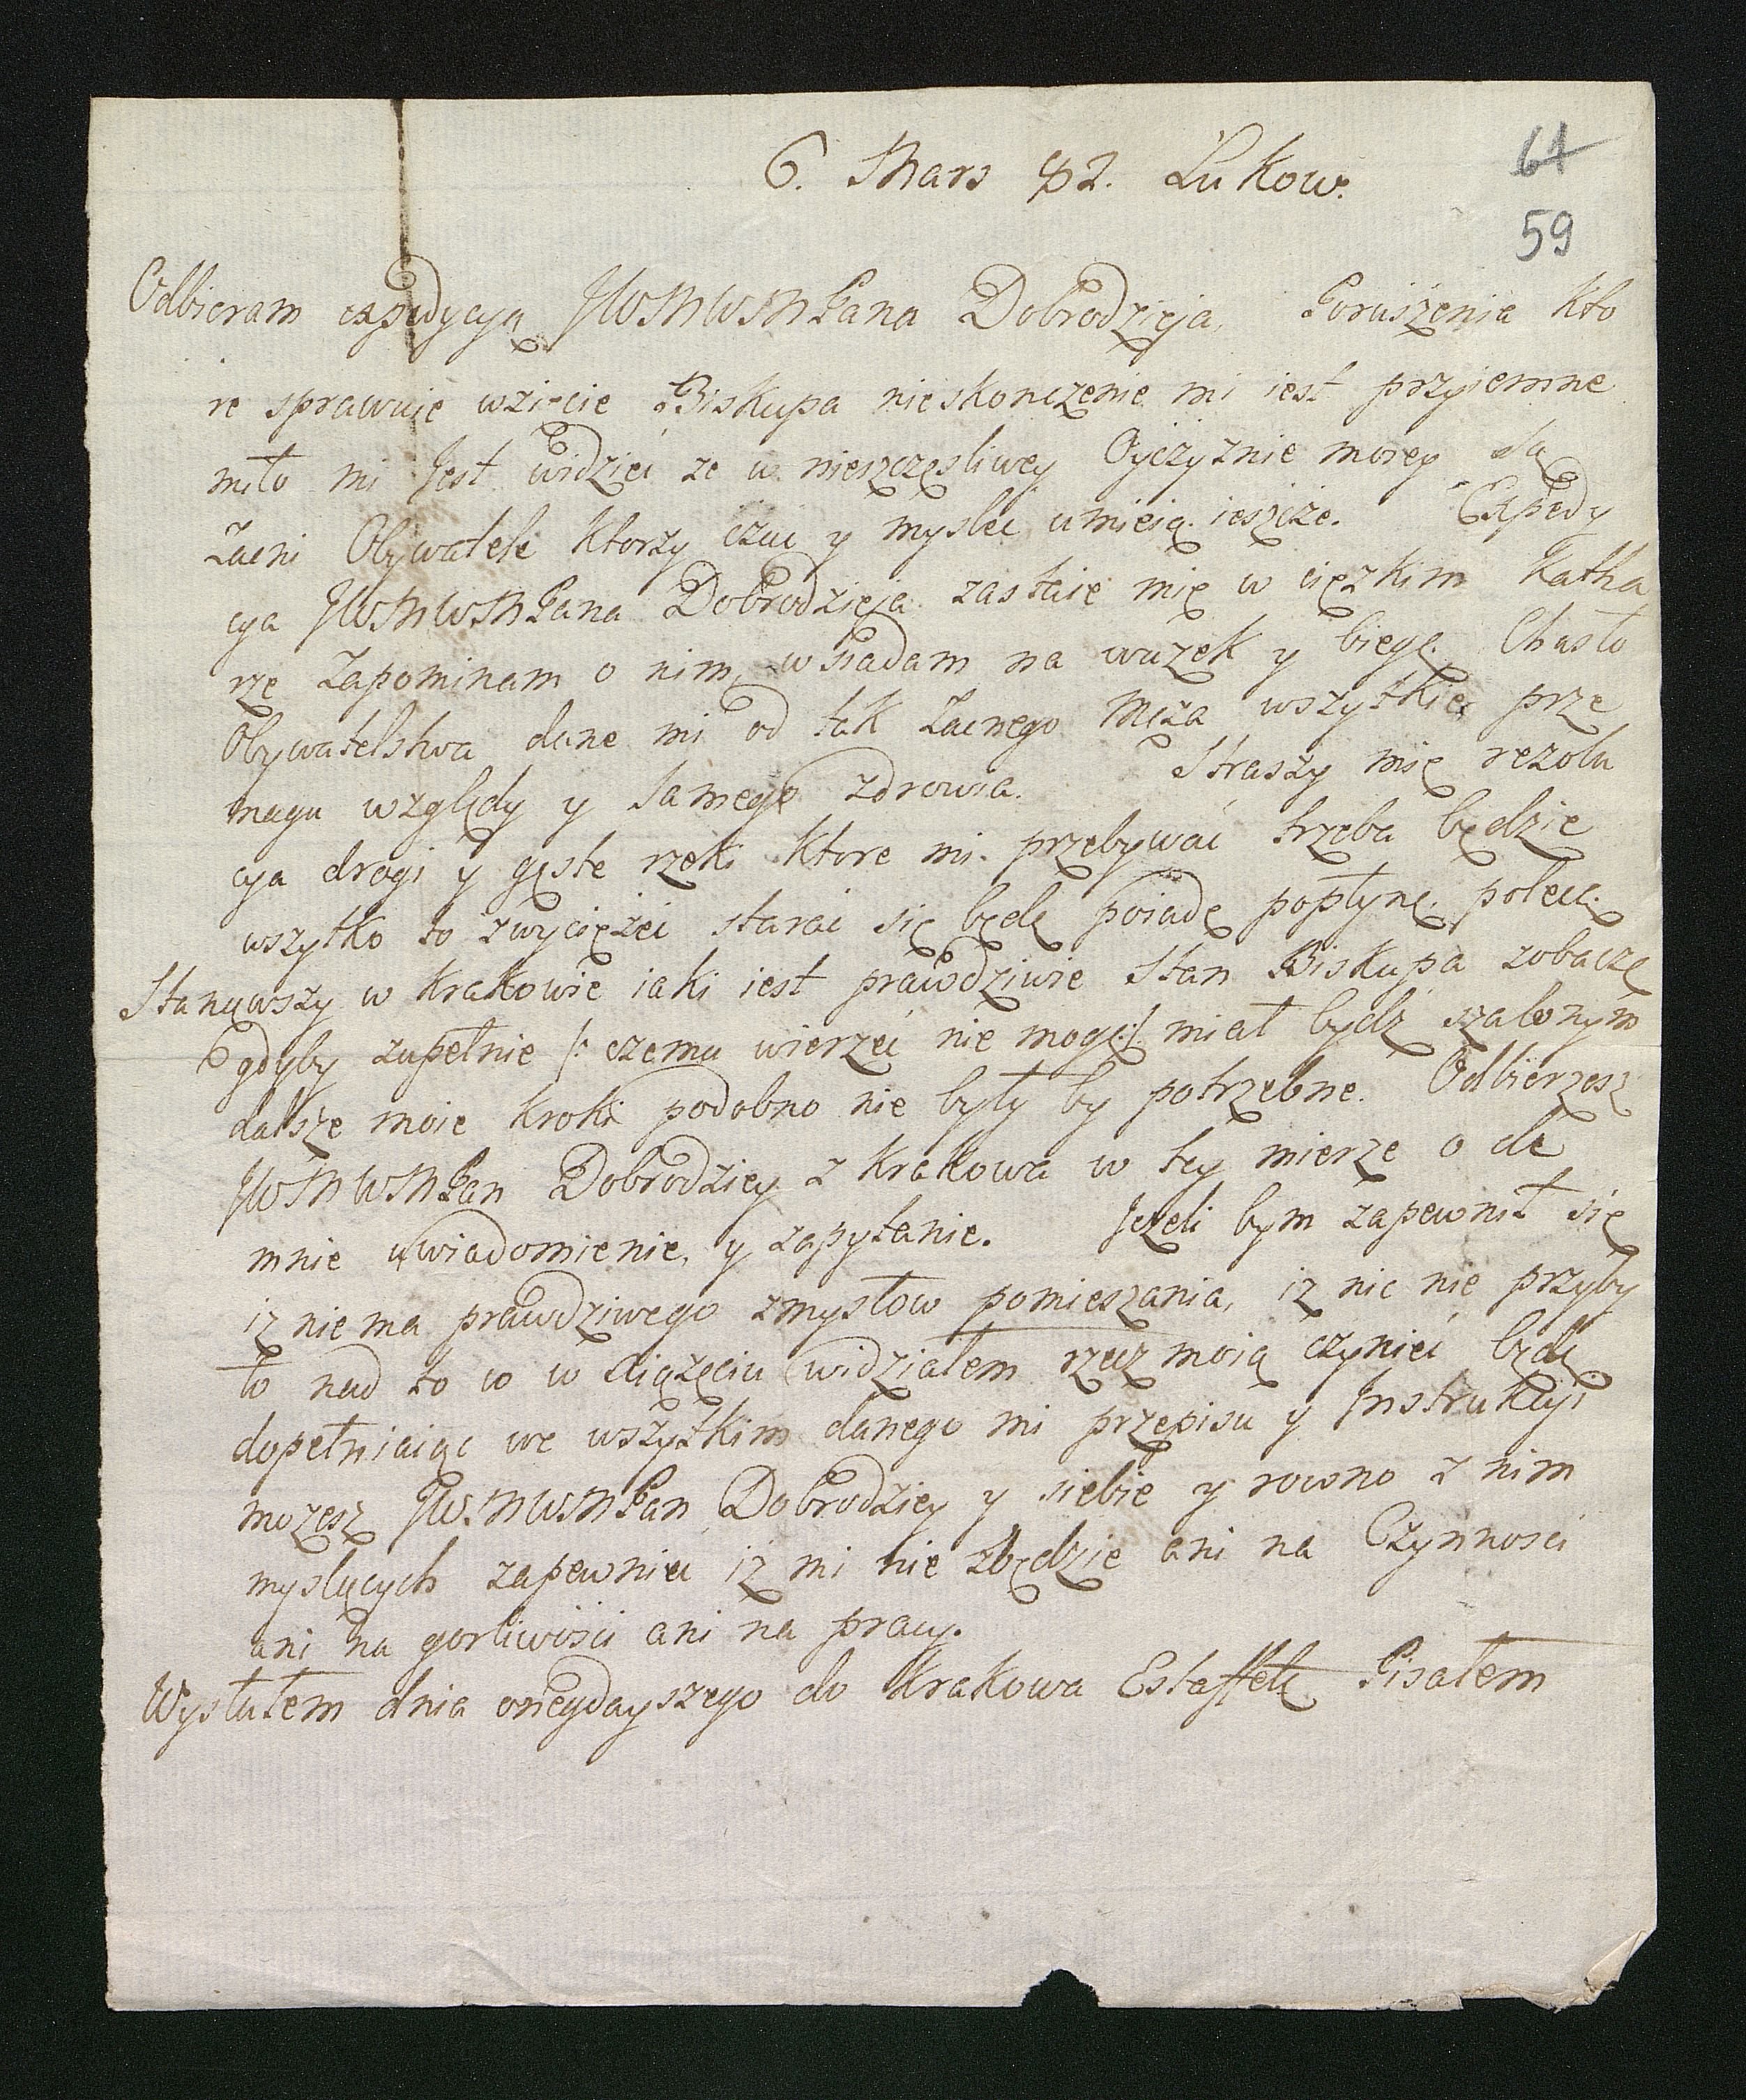 6. Mars 82. Łukow.
61
59
Odbieram expedycyą JWMWMPana Dobrodzieja, Poruszenie kto
re sprawuie wzięcie Biskupa nieskonczenie mi iest przyiemne
miło mi Jest widzieć ze w nieszczęsliwey Oyczyznie moiey są
Zacni Obywatele ktorzy czuć y mysleć umieią ieszcze. Expedy
cya JWMWMPana Dobrodzieja zastaie mię w cięzkim Katha
rze Zapominam o nim, wsiadam na wuzek y biegę. Chasło
Obywatelstwa dane mi od tak Zacnego Męza wszytkie prze
maga względy y samego zdrowia. Straszy mię rezolu
cya drogi y gęste rzeki ktore mi przebywać trzeba będzie
wszytko to zwyciężeć starać się będę poiadę popłynę, polecę.
Stanąwszy w Krakowie iaki iest prawdziwie Stan Biskupa zobaczę
gdyby zupełnie /: czemu wierzeć nie mogę :/ miał bydz szalonym
dalsze moie kroki podobno nie były by potrzebne. Odbierzesz
JWMWMPan Dobrodziey z Krakowa w tey mierze o de
mnie uwiadomienie, y zapytanie. Jezeli bym zapewnił się
iz niema prawdziwego zmysłow pomieszania, iz nic nie przyby
ło nad to co w Xiążęciu widziałem rzecz moią czynieć będę
dopełniaiąc we wszytkim danego mi przepisu y Instrukcyi
mozesz JWMWMPan Dobrodziey y siebie y rowno z nim
myslących zapewnieć iz mi nie zbędzie ani na Czynnosci
ani na gorliwosci ani na pracy.
Wysłałem dnia onegdayszego do Krakowa Estaffetę Pisałem